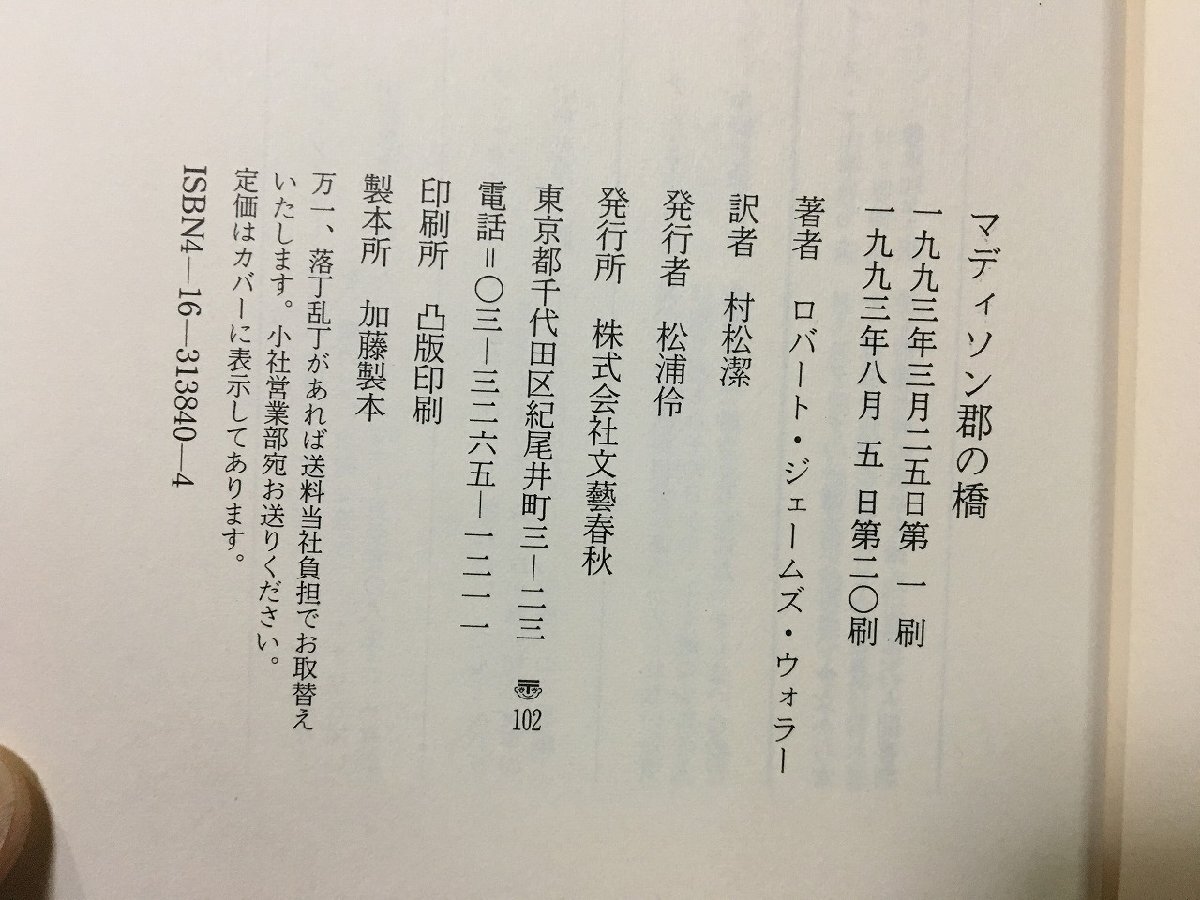 マディソン郡の橋
一九九三年三月二五日第一刷
一九九三年八月五日第二〇刷
著者 ロバート・ジェームズ・ウォラー
訳者 村松潔
発行者 松浦伶
発行所 株式会社文藝春秋
東京都千代田区紀尾井町三―二三 〠102
電話=〇三―三二六五―一二一一
印刷所 凸版印刷
製本所 加藤製本
万一、落丁乱丁があれば送料当社負担でお取替え
いたします。小社営業部宛お送りください。
定価はカバーに表示してあります。
ISBN4―16―313840―4